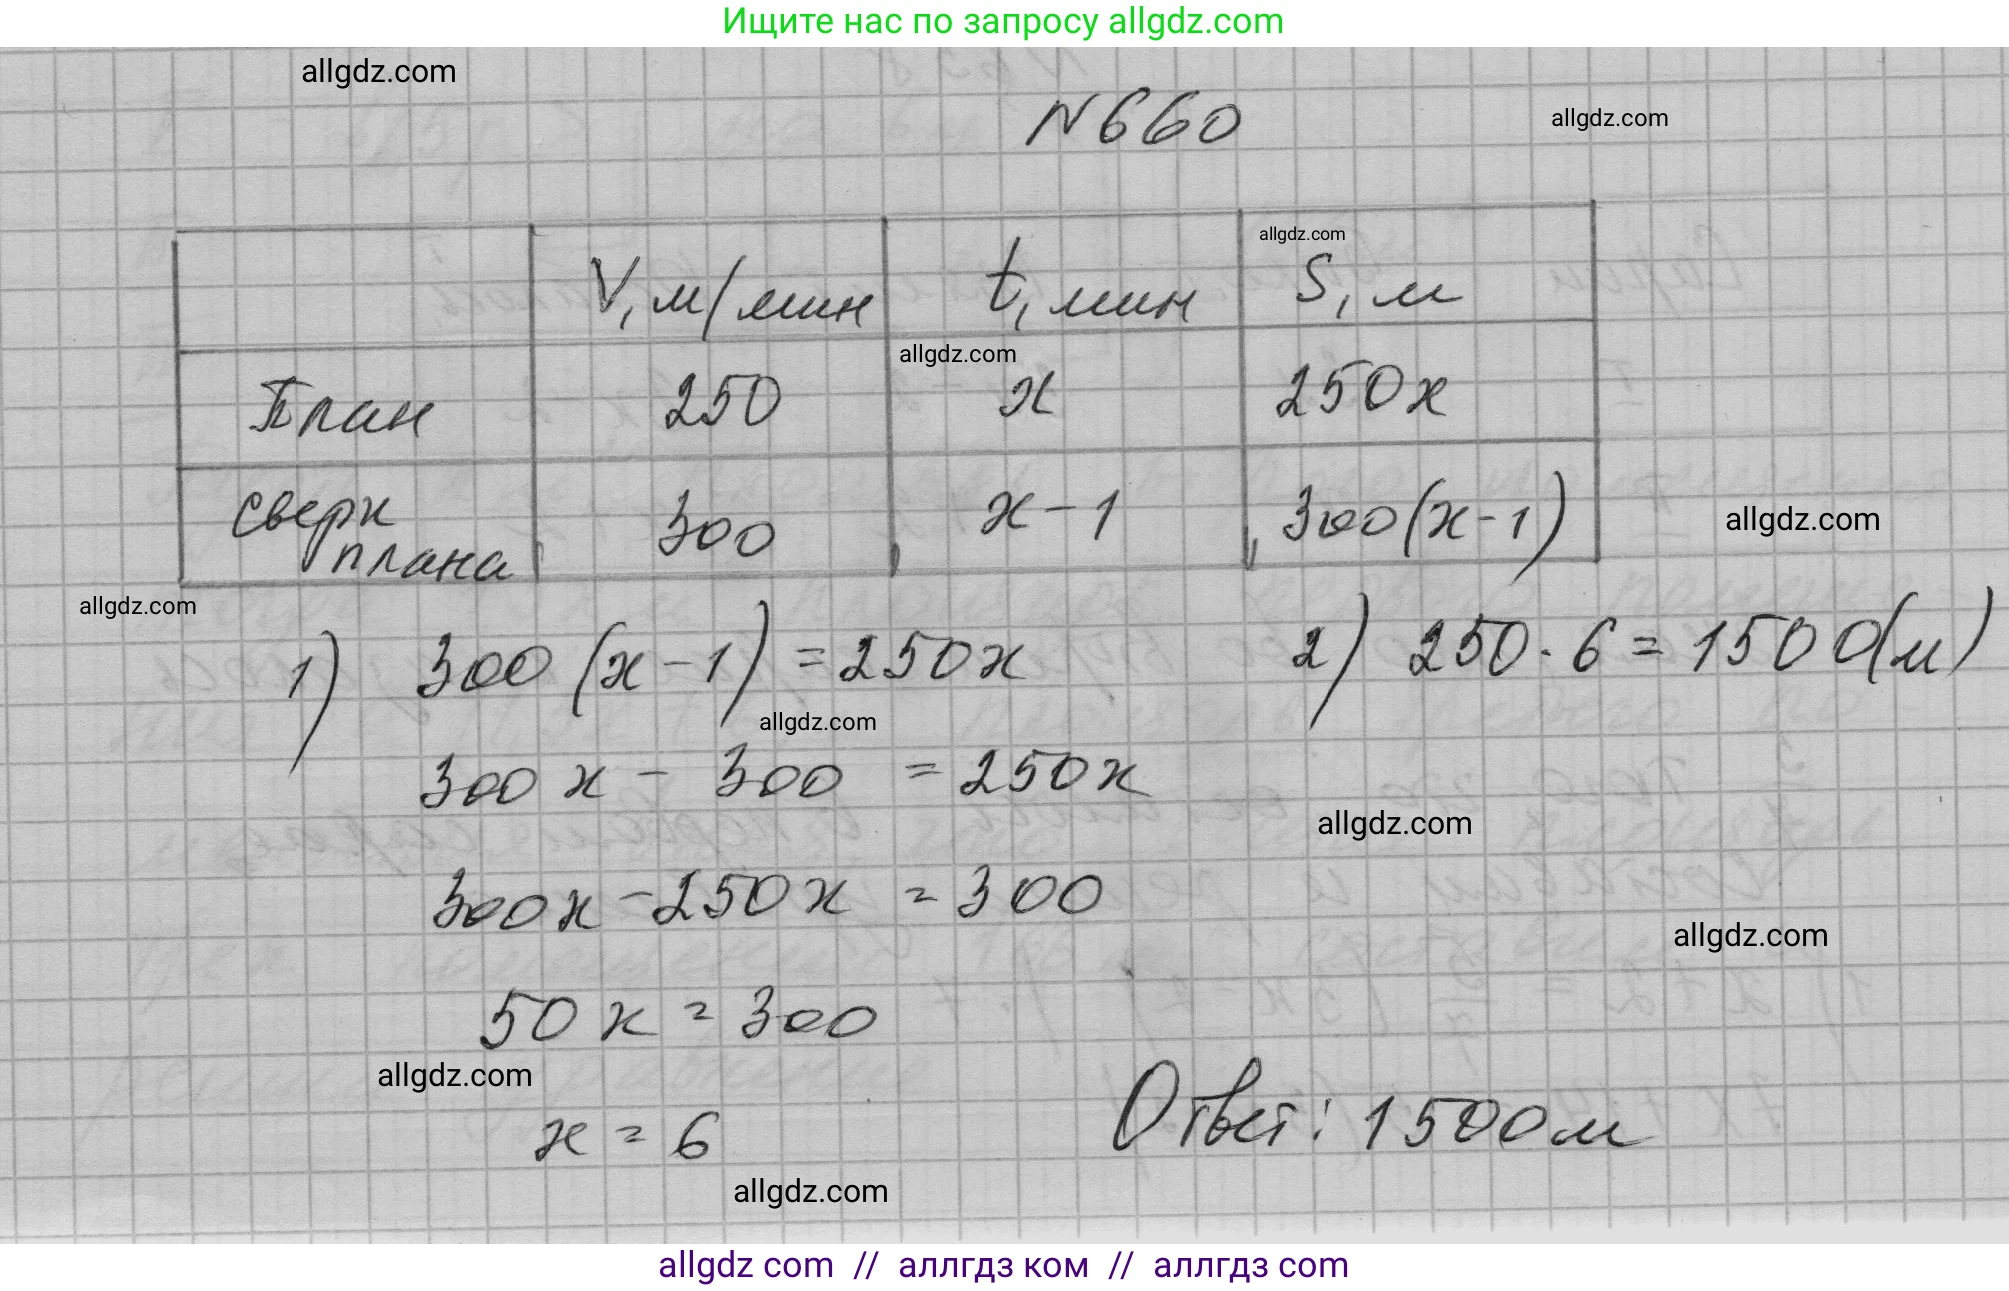 Ищите нас по запросу allgdz.com
allgdz.com
N660
allgdz.com
allgdz.com
V, м/мин t, мин S, м
allgdz.com
План 250 x 250x
сверх плана 300 x-1 300(x-1)
allgdz.com
allgdz.com
1) 300(x-1)=250x
2) 250·6=1500(м)
allgdz.com
300x-300=250x
allgdz.com
300x-250x=300
allgdz.com
50x=300
allgdz.com
x=6
Ответ: 1500м
allgdz.com
allgdz com // аллгдз ком // аллгдз com